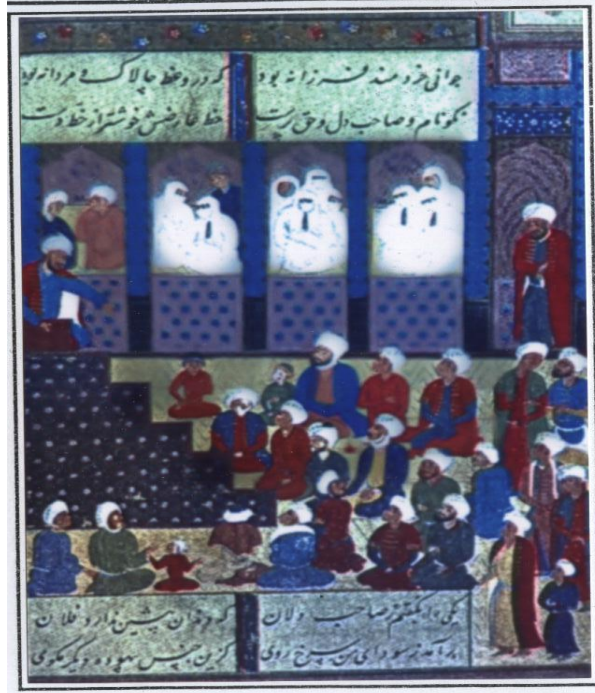 جوانی خردمند فرزانه بود که در وعظ چالاک و مردانه بود
نکونام و صاحب دل و حق پرست خط عارضش خوشتر از خط دست
یکی را بگفتم ز صاحب دلان که دندان پیشین ندارد فلان
برآمد ز سودای من سرخ روی کزین جنس بیهوده دیگر مگوی